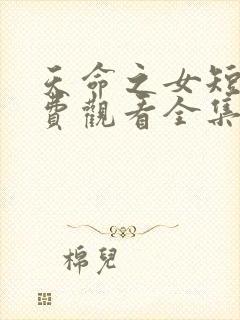 天命之女短
費觀看全集
棉兒